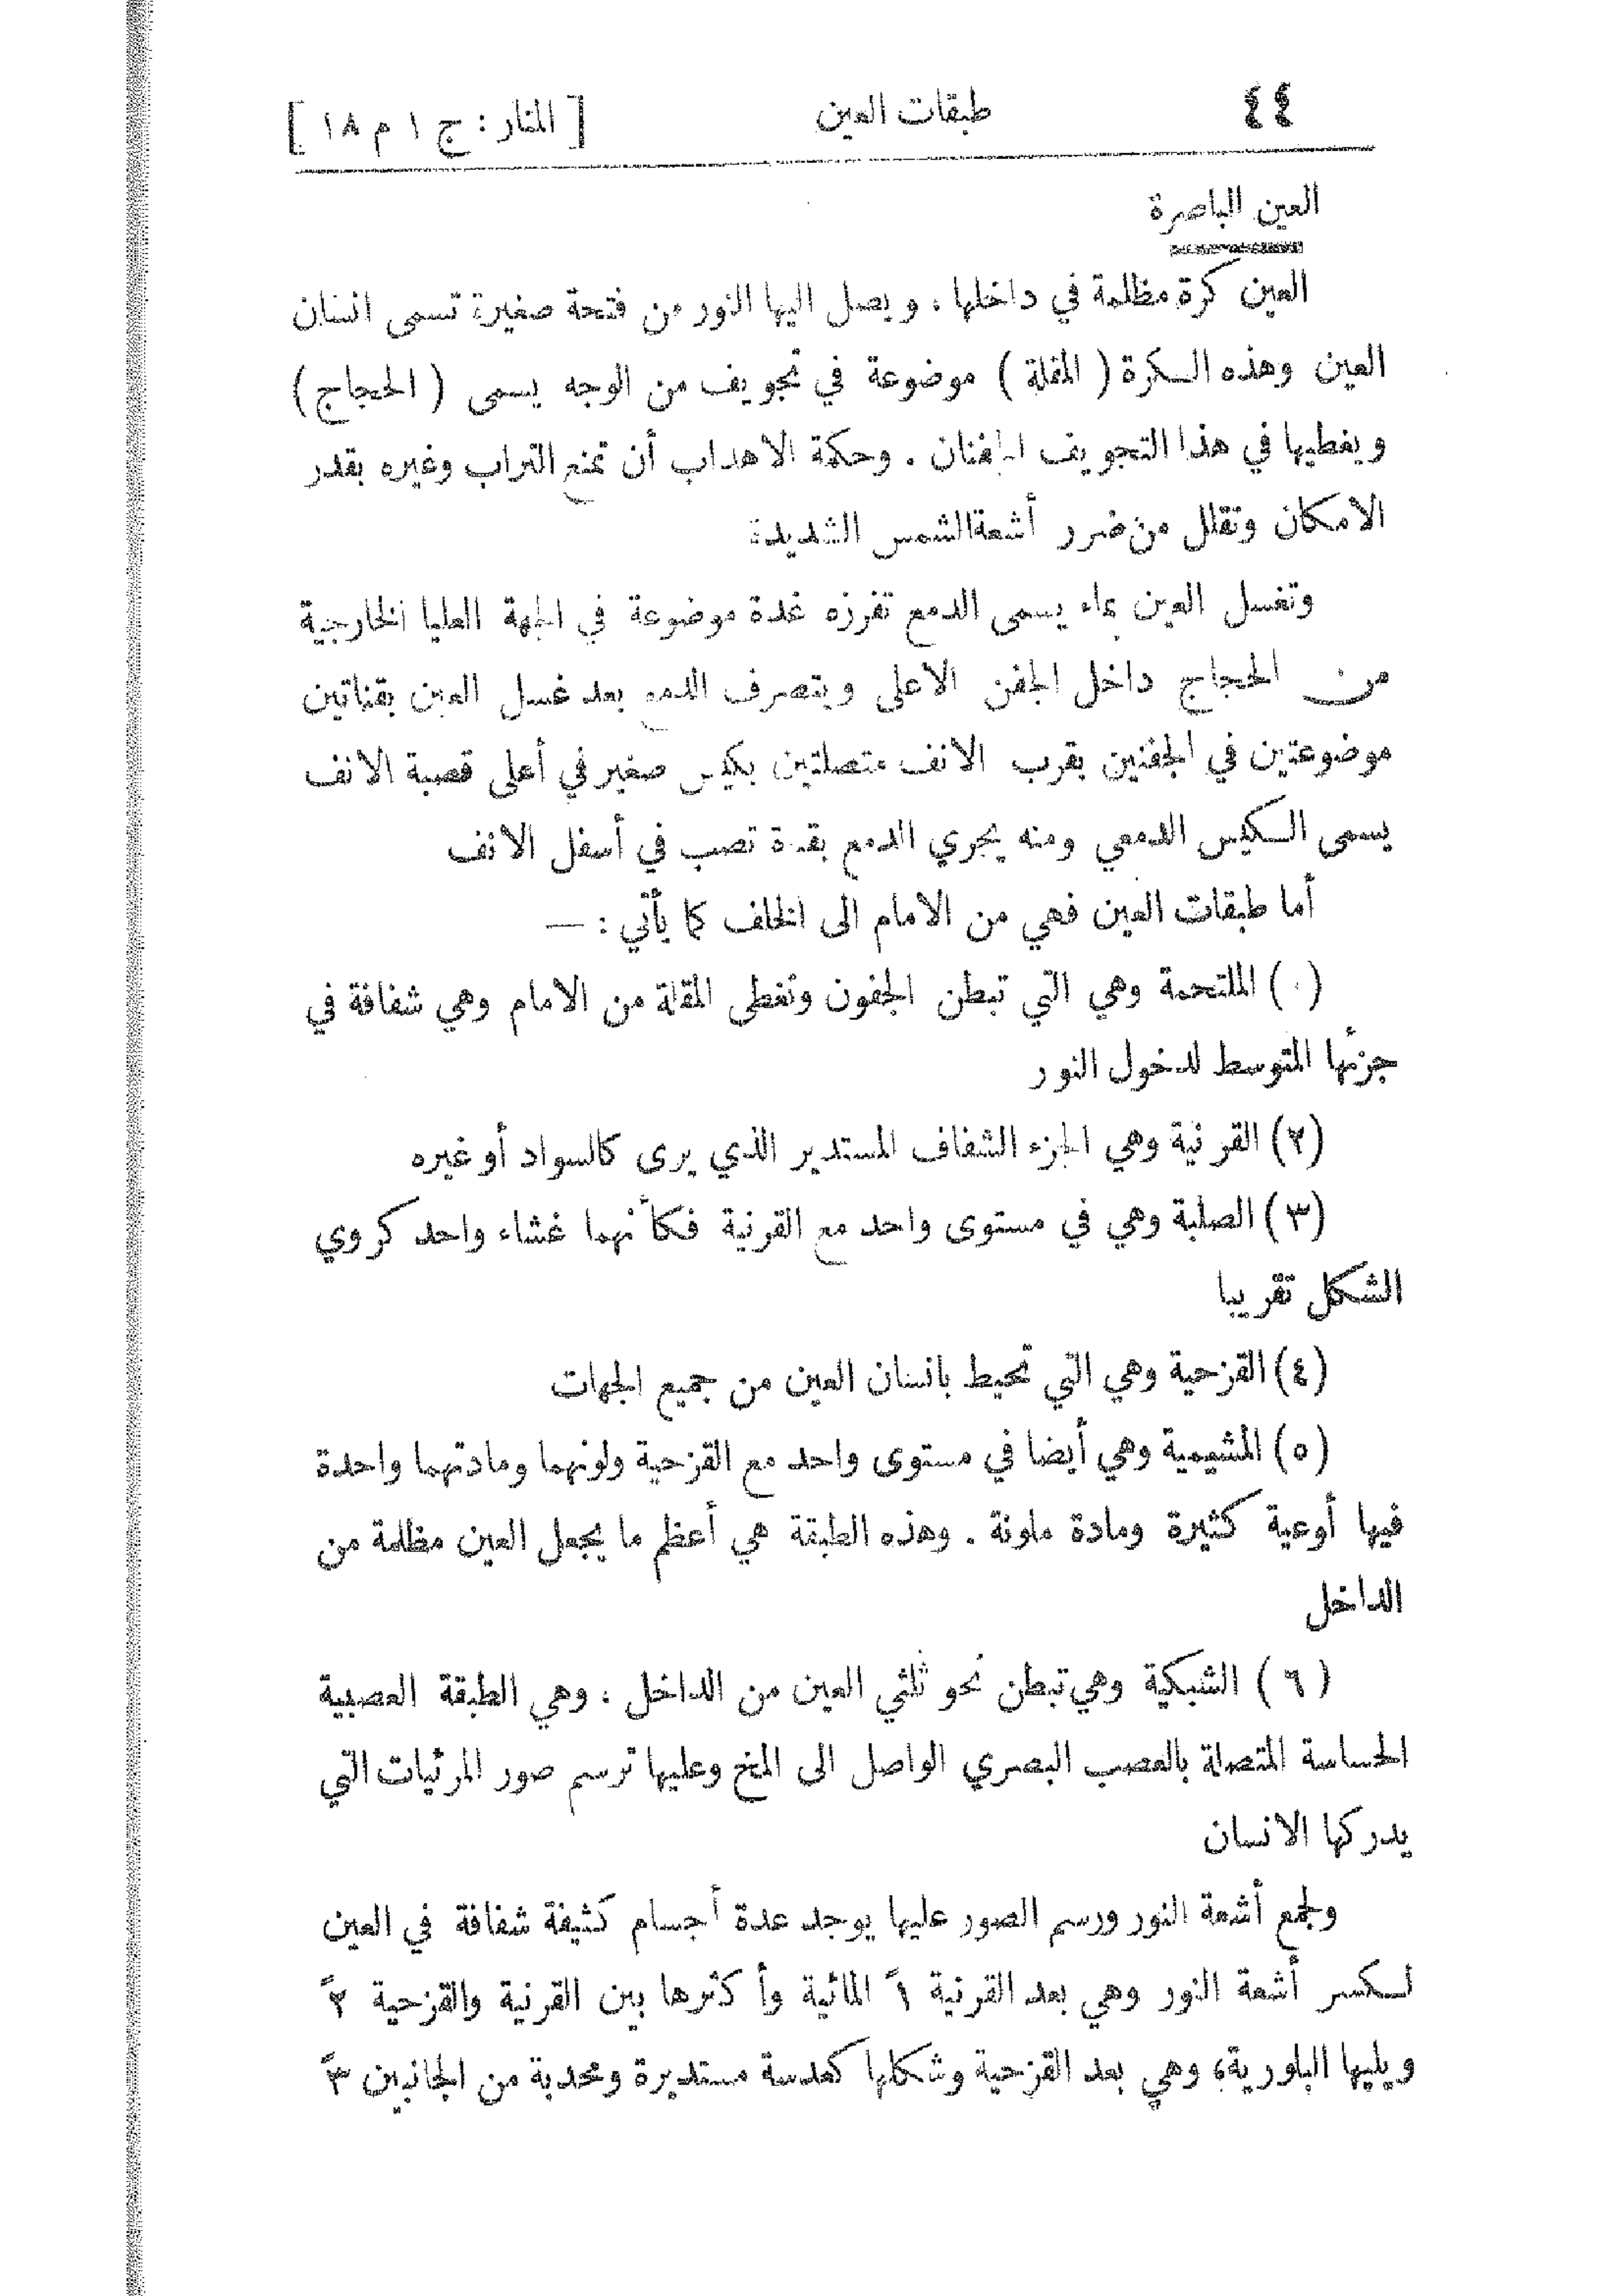 ٤٤ طبقات العين [ المنار : ج ١ م ١٨ ]
العين الباصرة
العين كرة مظلمة في داخلها ، ويصل اليها النور من فتحة صغيرة تسمى انسان
العين وهذه الكرة ( المقلة ) موضوعة في تجويف من الوجه يسمى ( الحجاج )
ويغطيها في هذا التجويف الجفنان . وحكمة الاهداب أن تمنع التراب وغيره بقدر
الامكان وتقلل من ضرر أشعة الشمس الشديدة
وتغسل العين بماء يسمى الدمع تفرزه غدة موضوعة في الجهة العليا الخارجية
من الحجاج داخل الجفن الاعلى ويتصرف الدمع بعد غسل العين بقناتين
موضوعتين في الجفنين بقرب الانف متصلتين بكيس صغير في أعلى قصبة الانف
يسمى الكيس الدمعي ومنه يجري الدمع بقناة تصب في أسفل الانف
أما طبقات العين فهي من الامام الى الخلف كما يأتي : —
( ) الملتحمة وهي التي تبطن الجفون وتغطى المقلة من الامام وهي شفافة في
جزئها المتوسط لدخول النور
(٢) القرنية وهي الجزء الشفاف المستدير الذي يرى كالسواد أو غيره
(٣) الصلبة وهي في مستوى واحد مع القرنية فكأنهما غشاء واحد كروي
الشكل تقريبا
(٤) القزحية وهي التي تحيط بانسان العين من جميع الجهات
(٥) المشيمية وهي أيضا في مستوى واحد مع القزحية ولونهما ومادتهما واحدة
فيها أوعية كثيرة ومادة ملونة . وهذه الطبقة هي أعظم ما يجعل العين مظلمة من
الداخل
(٦) الشبكية وهي تبطن نحو ثلثي العين من الداخل ، وهي الطبقة العصبية
الحساسة المتصلة بالعصب البصري الواصل الى المخ وعليها ترسم صور المرئيات التي
يدركها الانسان
ولجمع أشعة النور ورسم الصور عليها يوجد عدة أجسام كثيفة شفافة في العين
لكسر أشعة النور وهي بعد القرنية ١ً المائية وأكثرها بين القرنية والقزحية ٢ً
ويليها البلورية، وهي بعد القزحية وشكلها كعدسة مستديرة ومحدبة من الجانبين ٣ً